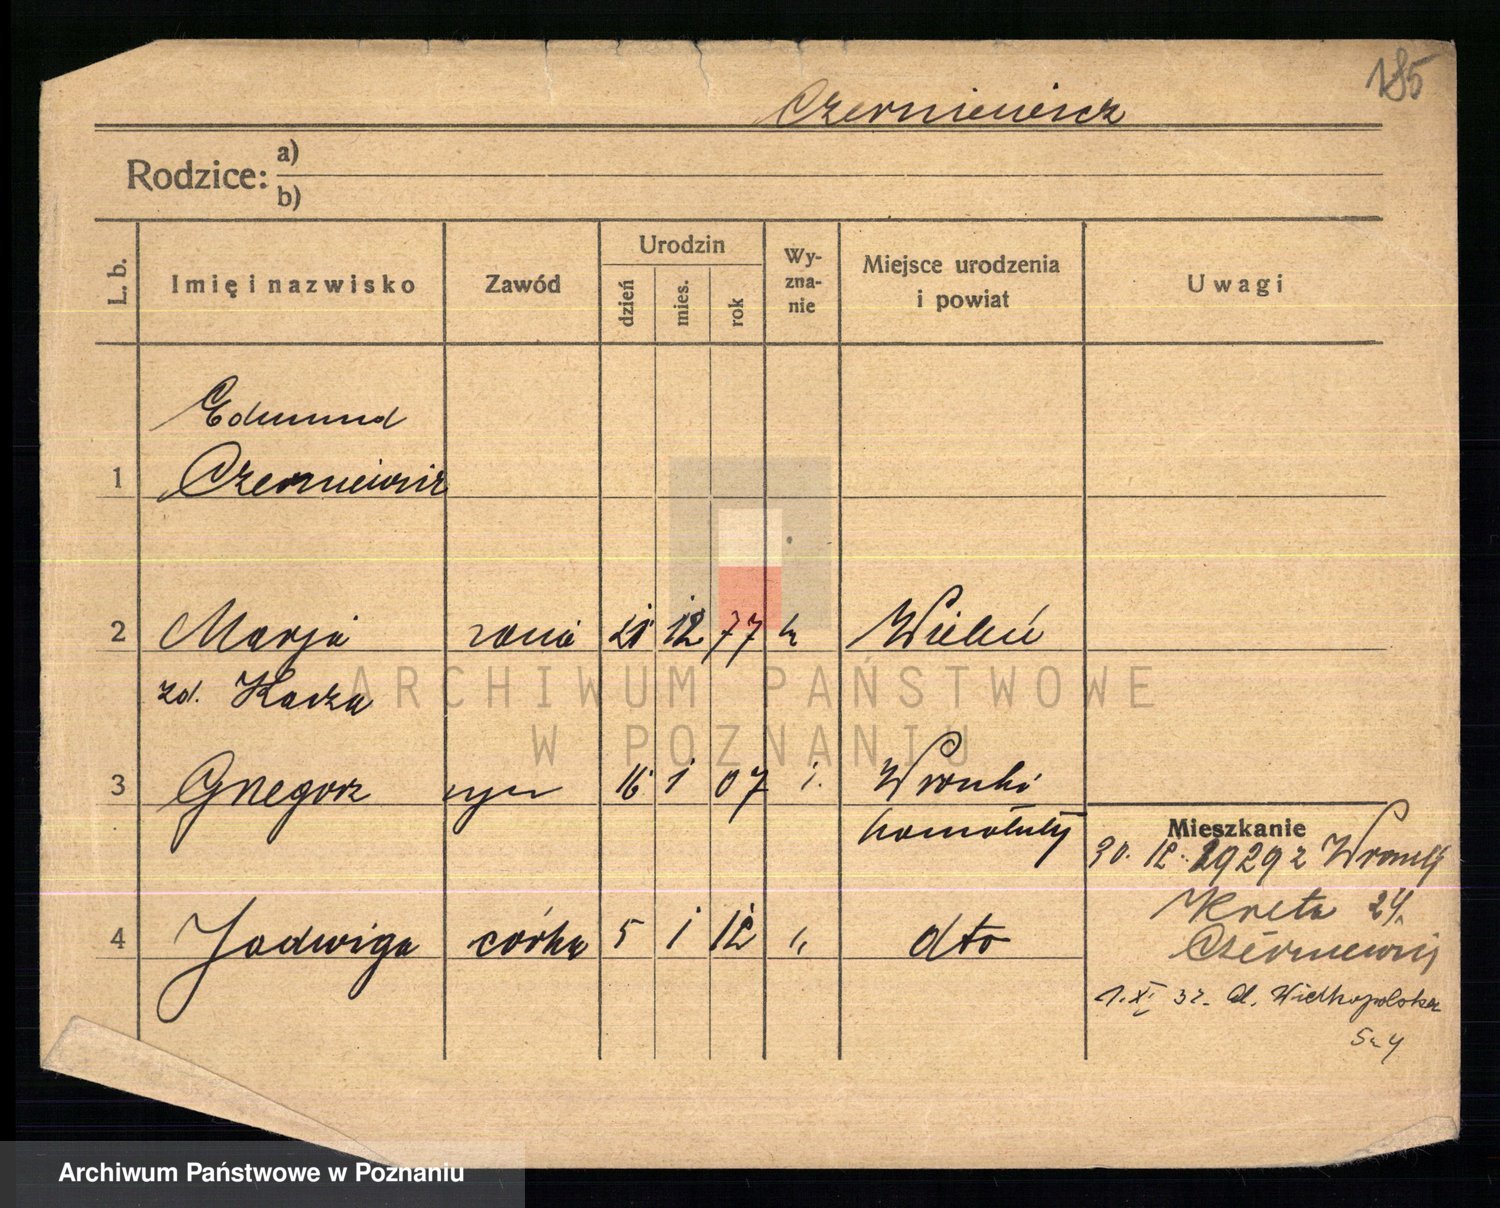 185
Czerniewicz
Rodzice: a)
b)
L. b.
Imię i nazwisko
Zawód
Urodzin
dzień
mies.
rok
Wy-
zna-
nie
Miejsce urodzenia
i powiat
Uwagi
Edmund
1 Czerniewicz
2 Marja żona 21 12 77 k
zd. Kaczka
ARCHIWUM PAŃSTWOWE
W POZNANIU
3 Grzegorz syn 16 1 07 Wronki
Szamotuły
4 Jadwiga córka 5 1 12 " dto
Mieszkanie
30. 12. 1929 z Wronek
Kręta 24
Czerniewicz
1. XI 32. Al. Wielkopolska
Archiwum Państwowe w Poznaniu